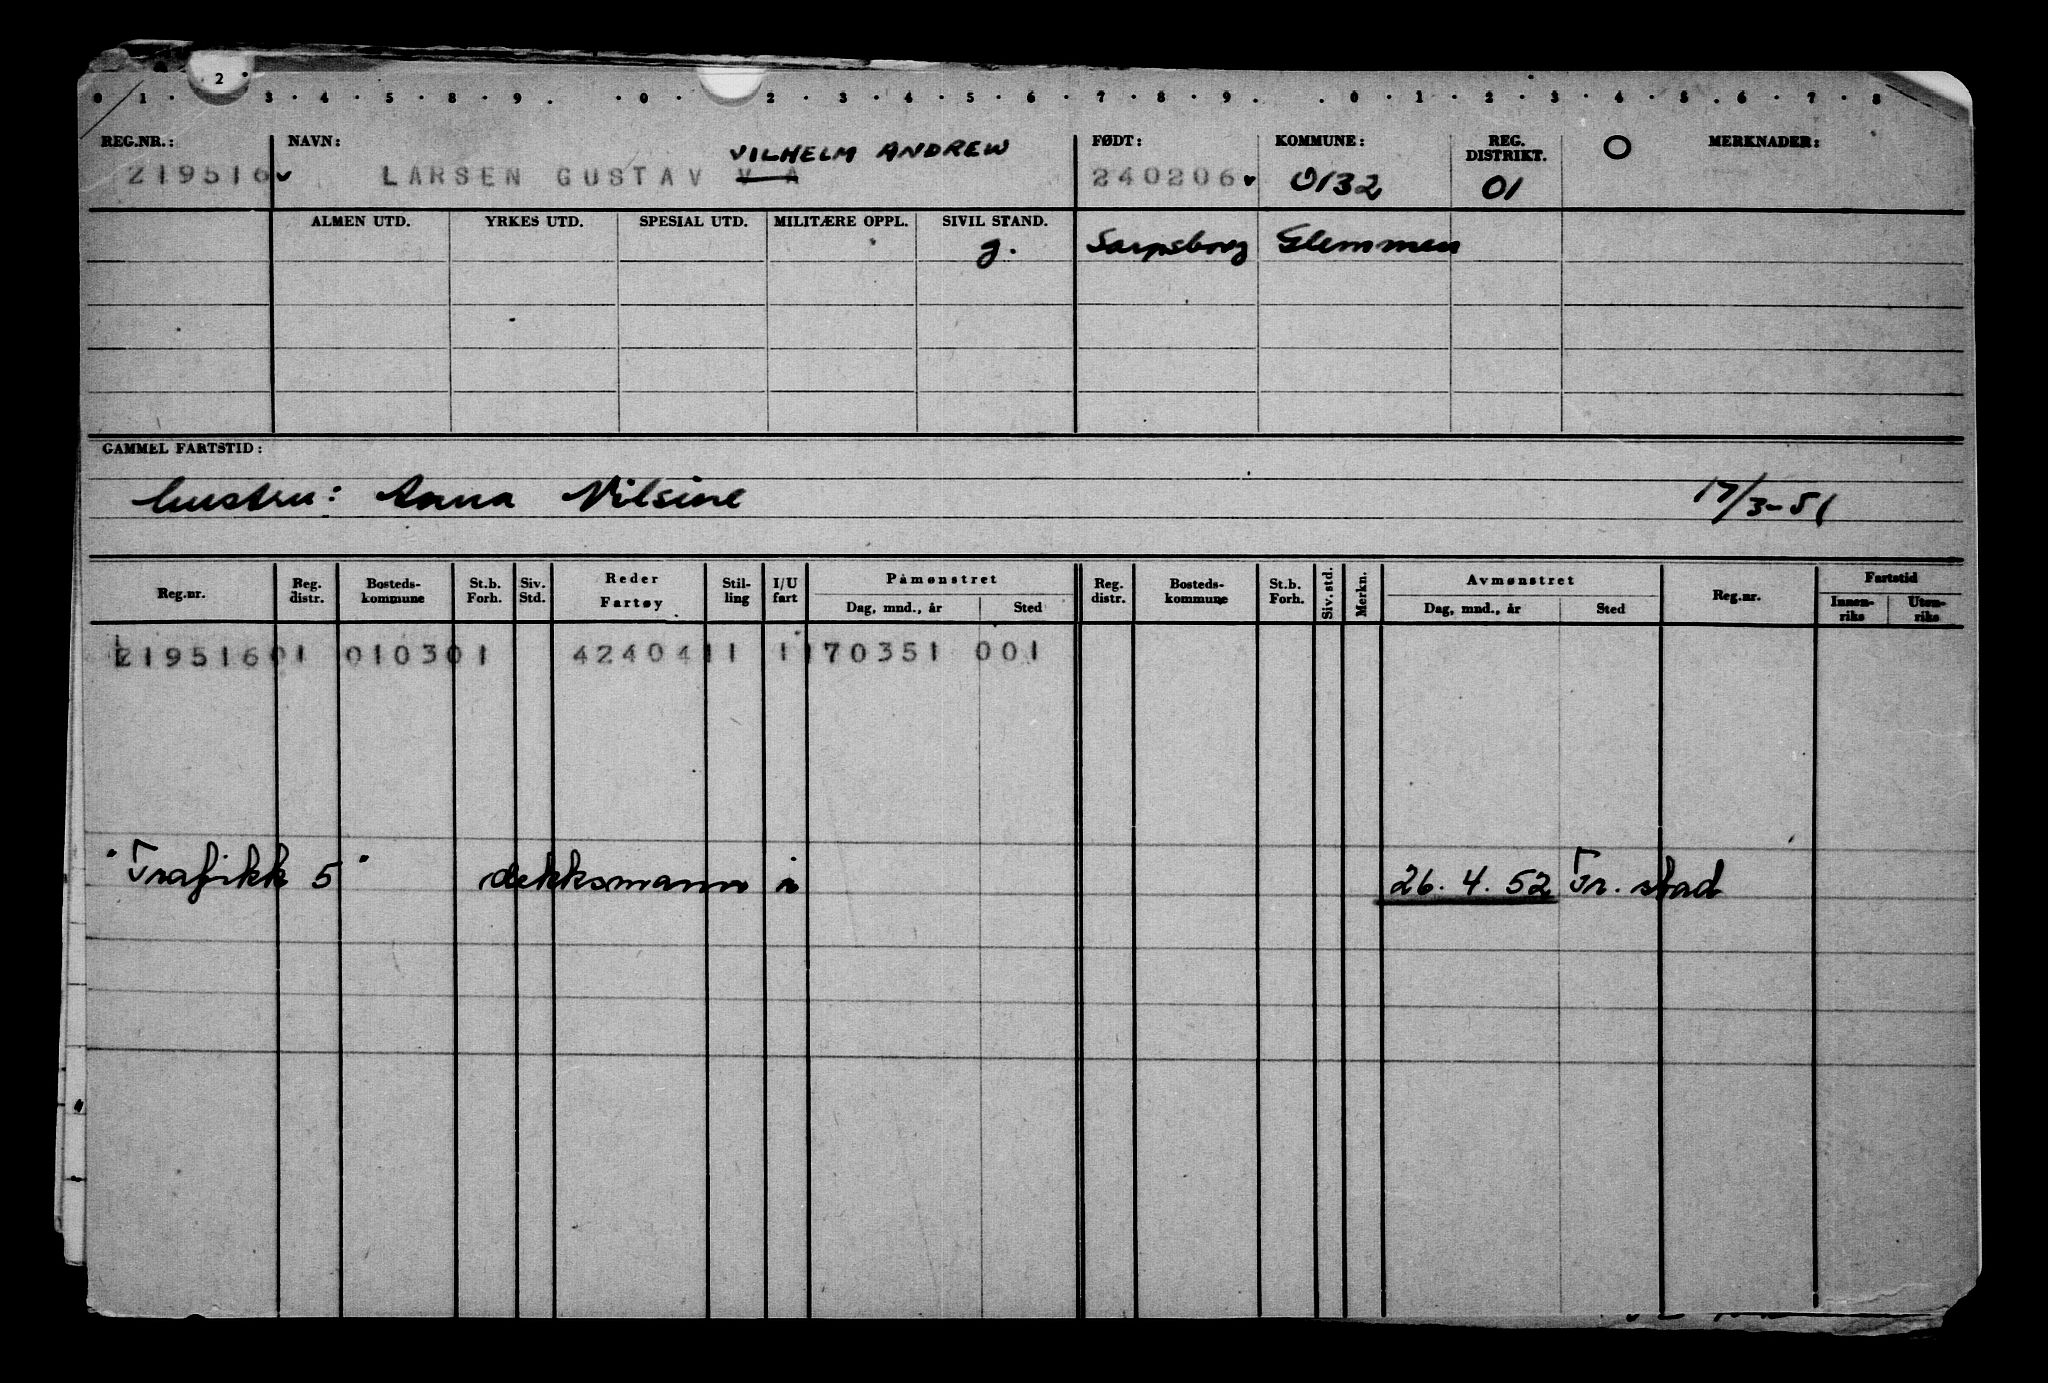 0 1 · 2 · 3 · 4 · 5 · 8 · 9 . · 0 · 2 · 3 · 4 · 5 · 6 · 7 · 8 · 9 . . 0 · 1 · 2 · 3 · 4 · 5 . 6 · 7 · 8
REG.NR.: NAVN: FØDT: KOMMUNE: REG. DISTRIKT. O MERKNADER:
VILHELM ANDREW
219516 LARSEN GUSTAV V A 240206 0132 01
ALMEN UTD. YRKES UTD. SPESIAL UTD. MILITÆRE OPPL. SIVIL STAND.
g. Sarpsborg Glemmen
GAMMEL FARTSTID:
hustru: Anna Nilsine 17/3-51
Reg.nr. Reg. distr. Bosteds-kommune St.b. Forh. Siv. Std. Reder Fartøy Stil-ling I/U fart Påmønstret Dag, mnd., år Sted Reg. distr. Bosteds-kommune St.b. Forh. Siv. std. Merkn. Avmønstret Dag, mnd., år Sted Reg.nr. Fartstid Innen-riks Uten-riks
219516 01 0103 01 42404 11 1 170351 001
"Trafikk 5" dekksmann i 26.4.52 Fr.stad